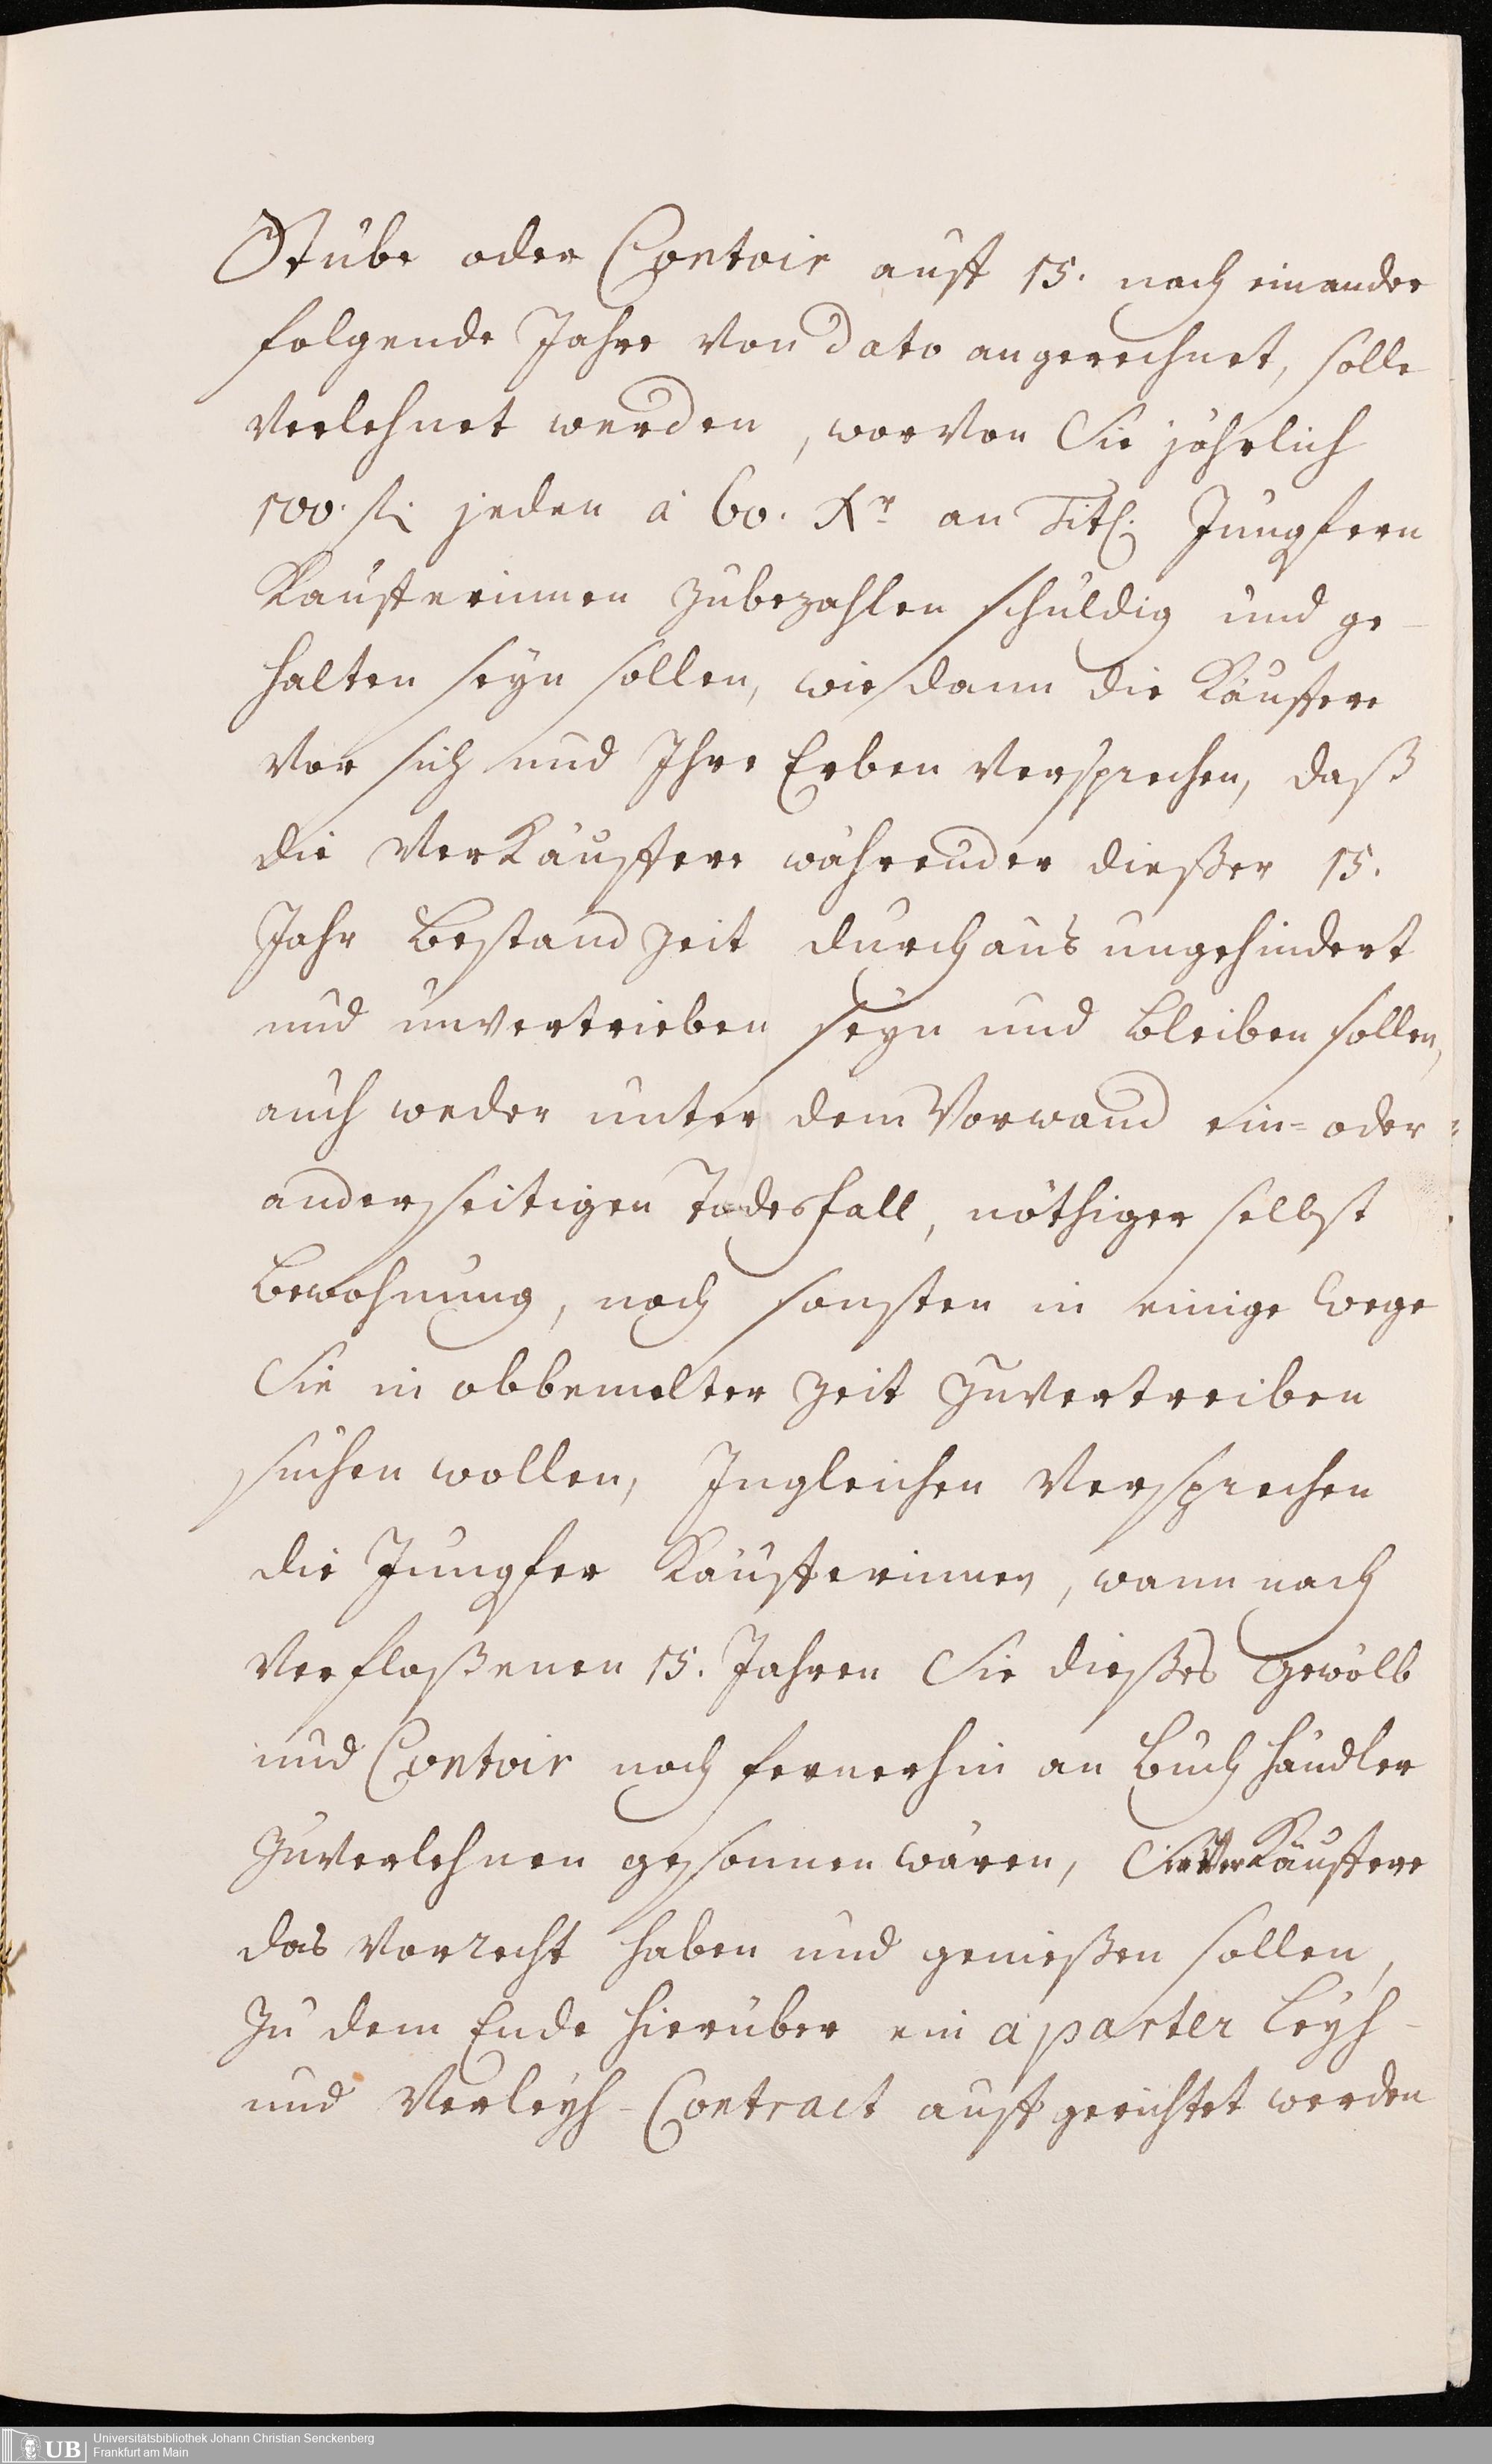 Stube oder Contoir auff 15. nach einander
folgende Jahre von dato angerechnet, solle
verlehnet werden, worvon Sie jährlich
100. fl. jeden à 60. Xr. an Titl. Jungfern
Kaufferinnen zubezahlen schuldig und ge-
halten seyn sollen, wie dann die Käuffere
vor sich und Ihre Erben versprechen, daß
die Verkäuffere währender dießer 15.
Jahr Bestand Zeit durchaus ungehindert
und unvertrieben seyn und bleiben sollen,
auch weder unter dem Vorwand ein- oder
anderseitigen Todesfall, nöthiger selbst
Bewohnung, noch sonsten in einige Wege
Sie in obbemelter Zeit zuvertreiben
suchen wollen, Ingleichen versprechen
die Jungfer Käufferinnen, wann nach
verfloßenen 15. Jahren Sie dießes Gewölb
und Contoir noch fernerhin an Buch händler
zuverlehnen gesonnen wären, Sie Verkäuffere
das Vorrecht haben und genießen sollen,
zu dem Ende hierüber ein aparter Leyh-
und Verleyh-Contract auffgerichtet werden
Universitätsbibliothek Johann Christian Senckenberg
Frankfurt am Main
UB